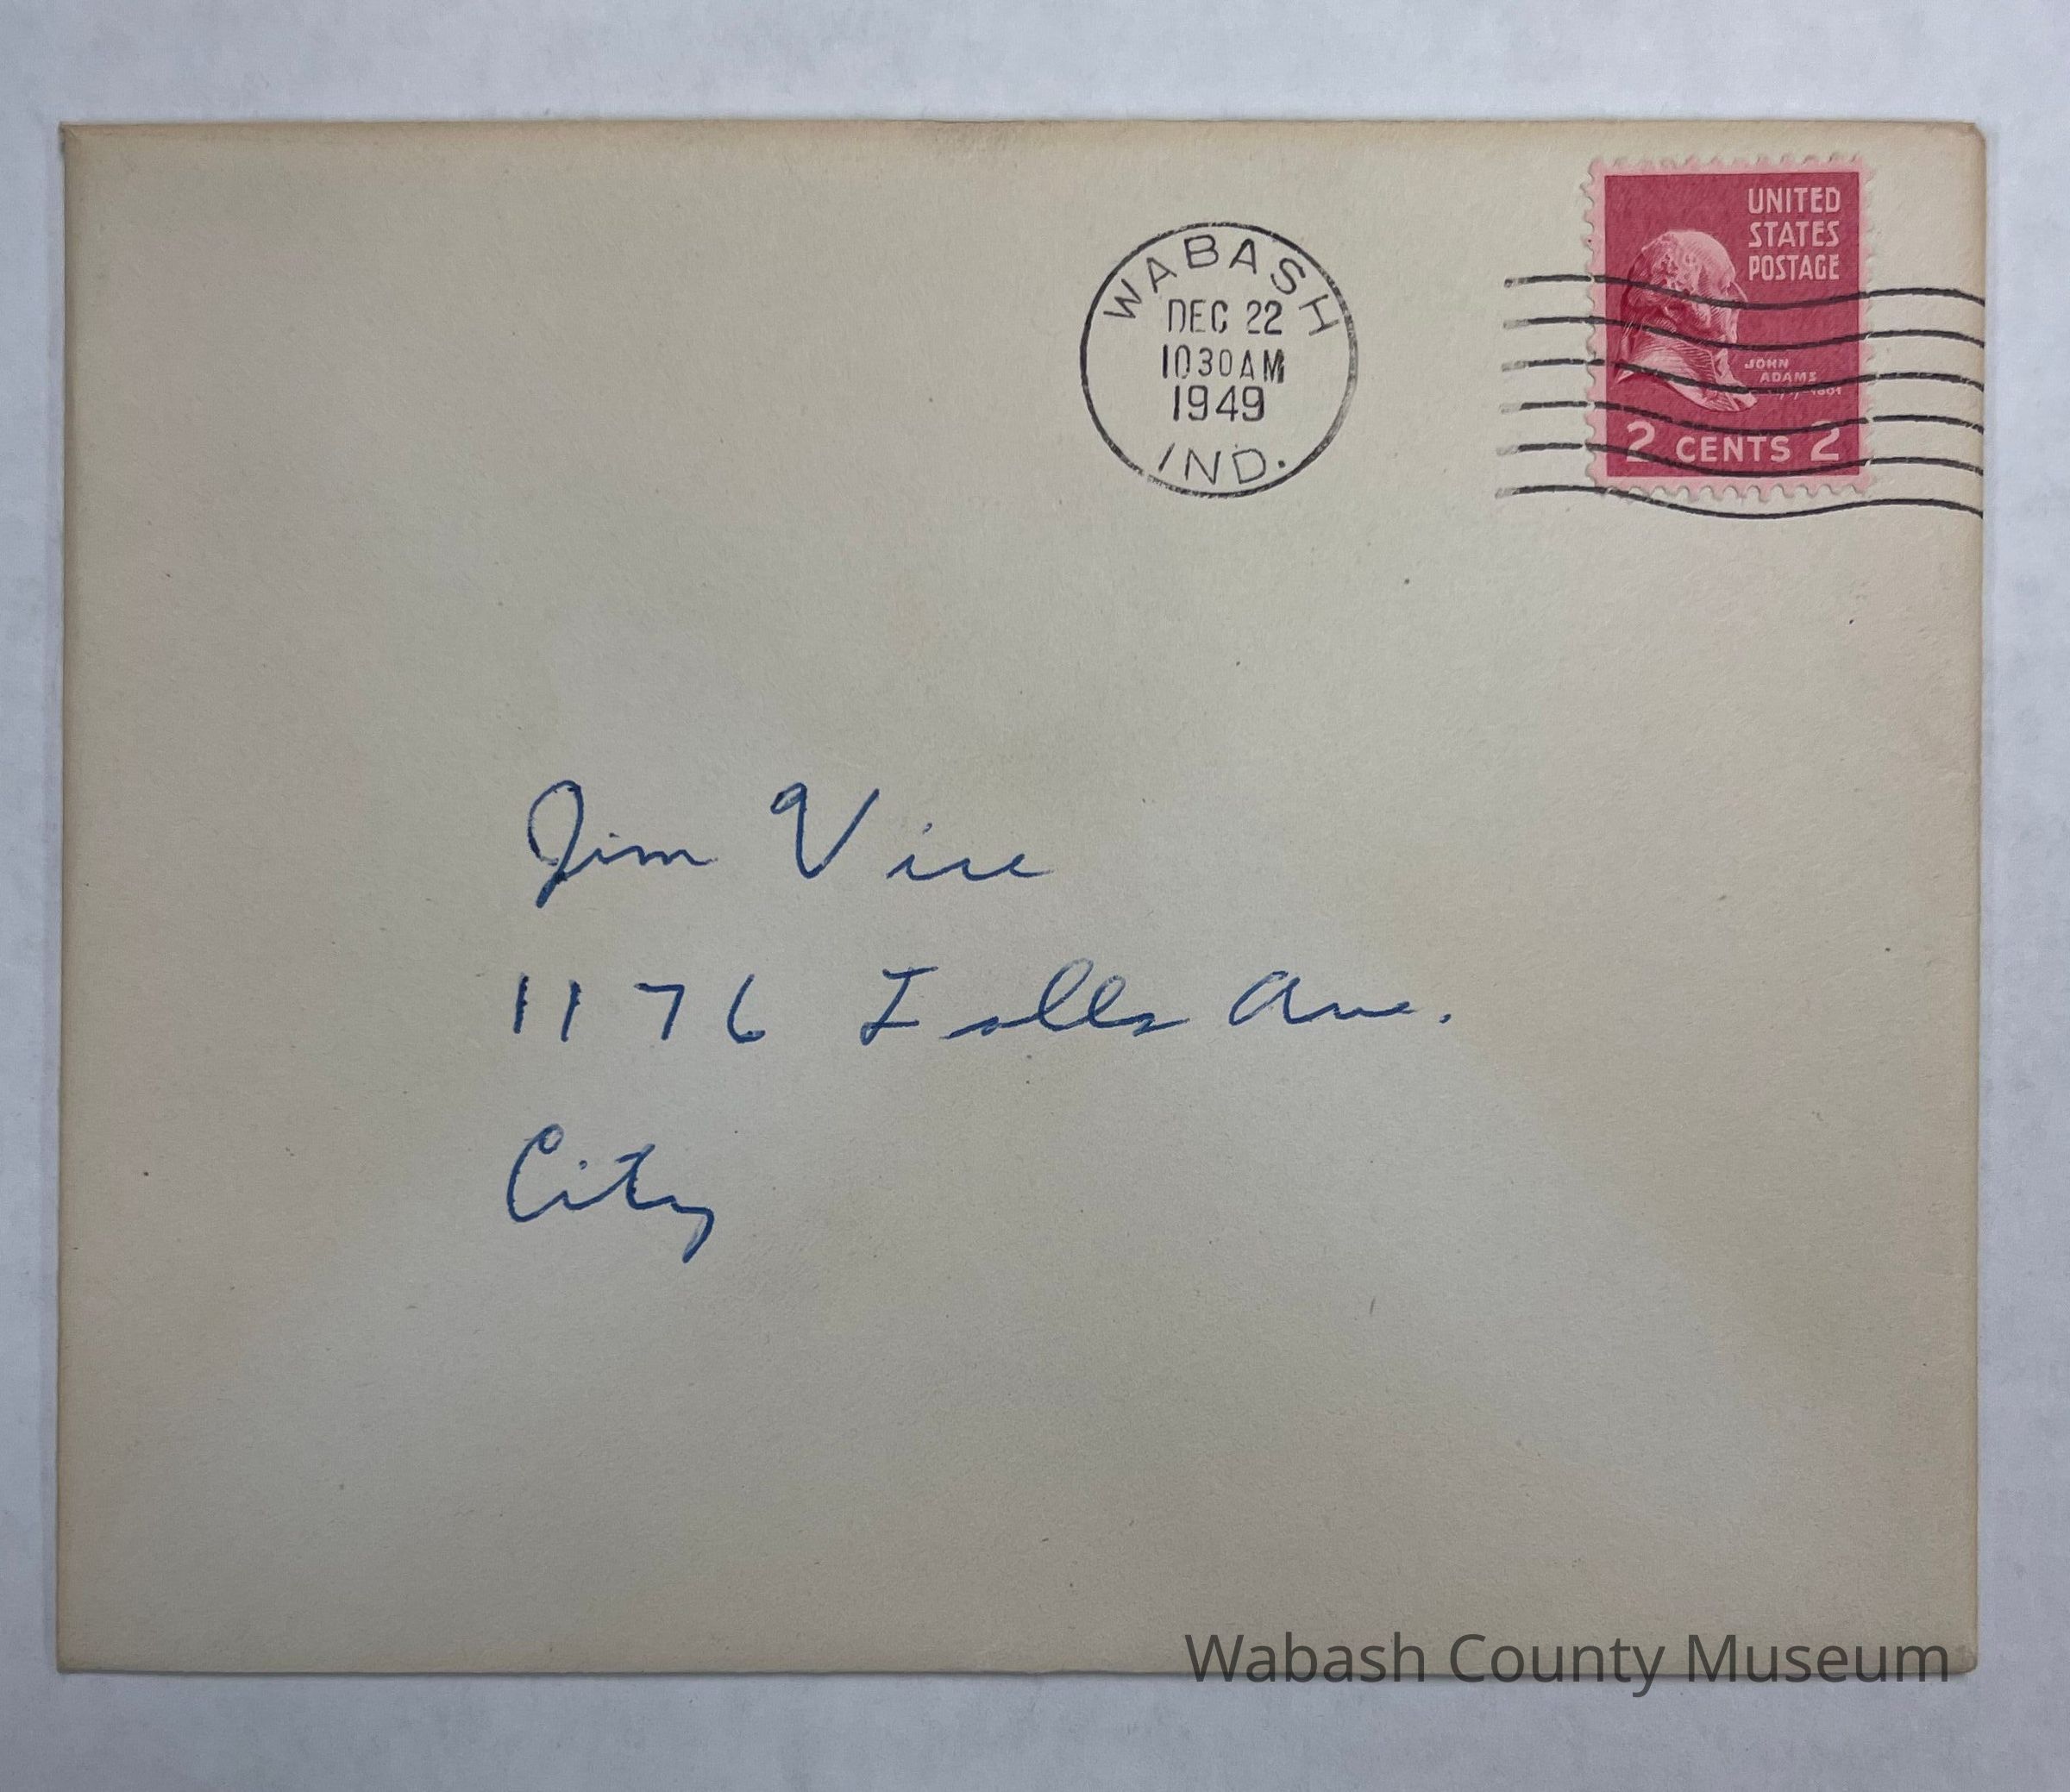 WABASH
DEC 22
10 30 AM
1949
IND.
UNITED
STATES
POSTAGE
JOHN
ADAMS
2 CENTS 2
Jim
1176 Falls Ave.
City
Wabash County Museum